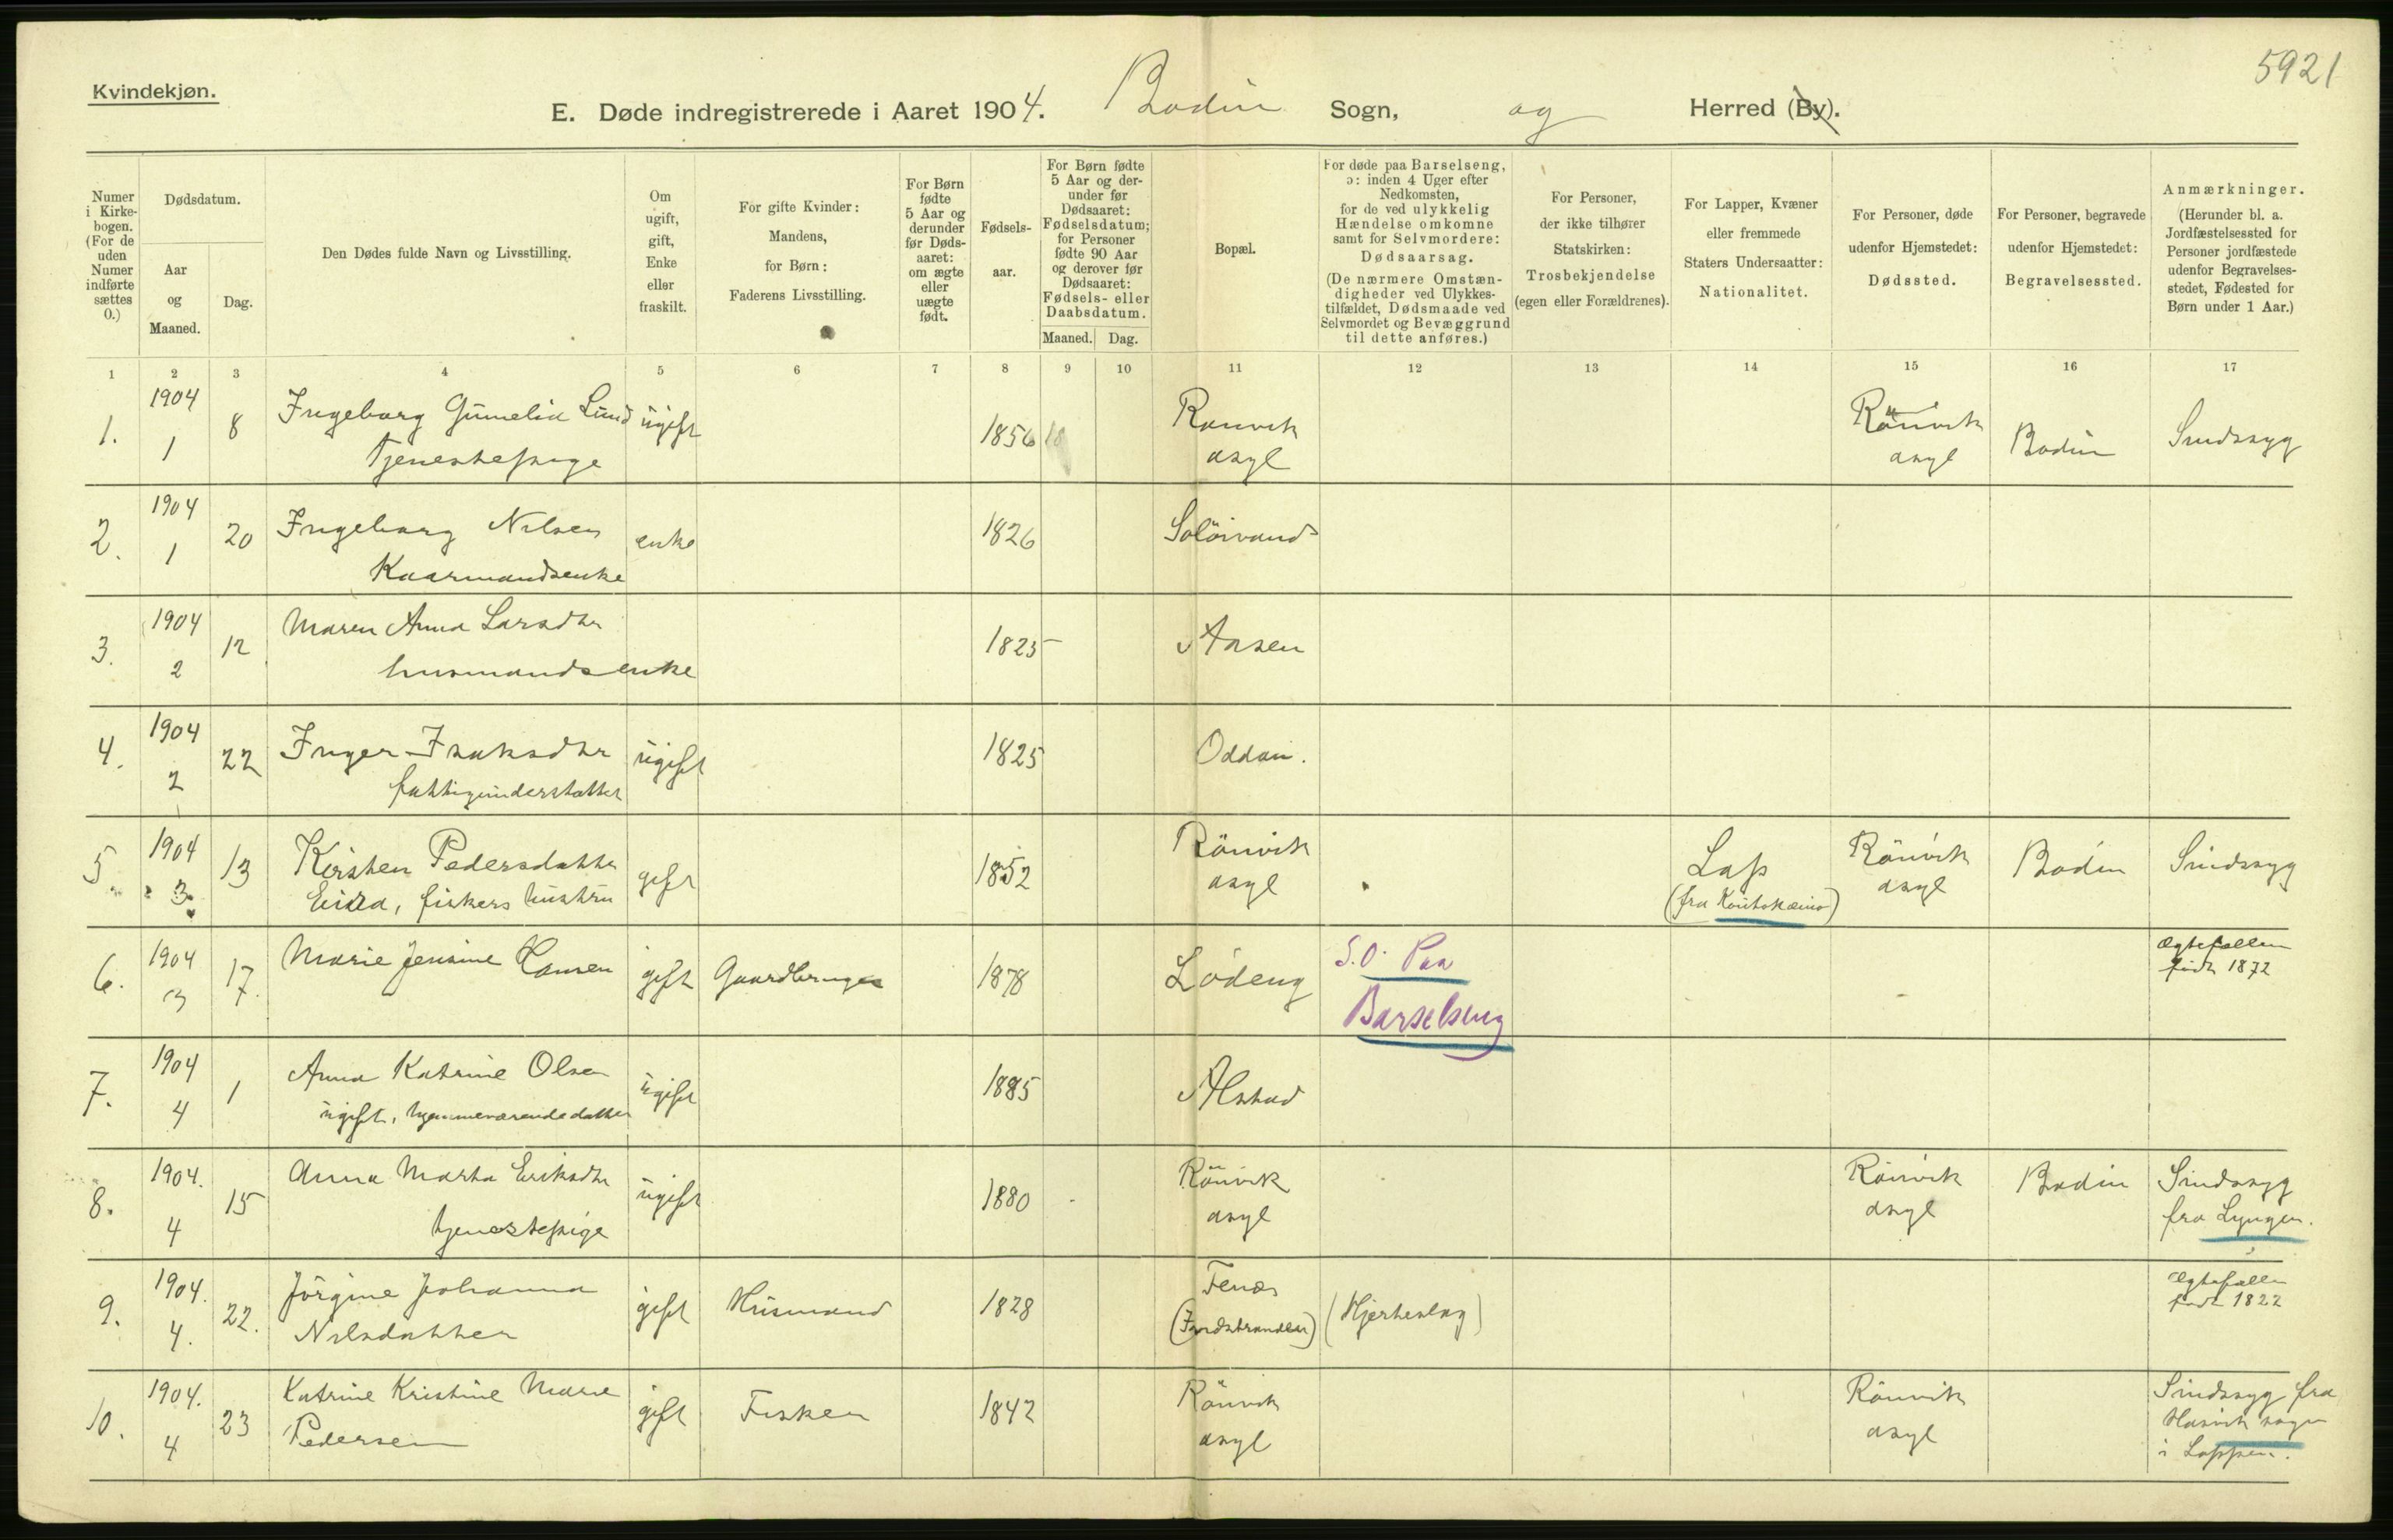 5921
Kvindekjøn.
E. Døde indregistrerede i Aaret 1904. Bodin Sogn, og Herred (By).
Numer i Kirkebogen. (For de uden Numer indførte sættes 0.)
Dødsdatum.
Aar og Maaned.
Dag.
Den Dødes fulde Navn og Livsstilling.
Om ugift, gift, Enke eller fraskilt.
For gifte Kvinder: Mandens, for Børn: Faderens Livsstilling.
For Børn fødte 5 Aar og derunder før Dødsaaret: om ægte eller uægte født.
Fødselsaar.
For Børn fødte 5 Aar og derunder før Dødsaaret: Fødselsdatum; for Personer fødte 90 Aar og derover før Dødsaaret: Fødsels- eller Daabsdatum.
Maaned. Dag.
Bopæl.
For døde paa Barselseng, ɔ: inden 4 Uger efter Nedkomsten, for de ved ulykkelig Hændelse omkomne samt for Selvmordere: Dødsaarsag. (De nærmere Omstændigheder ved Ulykkestilfældet, Dødsmaade ved Selvmordet og Bevæggrund til dette anføres.)
For Personer, der ikke tilhører Statskirken: Trosbekjendelse (egen eller Forældrenes).
For Lapper, Kvæner eller fremmede Staters Undersaatter: Nationalitet.
For Personer, døde udenfor Hjemstedet: Dødssted.
For Personer, begravede udenfor Hjemstedet: Begravelsessted.
Anmærkninger. (Herunder bl. a. Jordfæstelsessted for Personer jordfæstede udenfor Begravelsesstedet, Fødested for Børn under 1 Aar.)
1 2 3 4 5 6 7 8 9 10 11 12 13 14 15 16 17
1. 1904 1 8 Ingeborg Gumelia Lund ugift 1856 18 Rønvik asyl Rönvik asyl Bodin Sindssyg
Tjenestepige
2. 1904 1 20 Ingeborg Nilsen enke 1826 Soløivand
Kaarmandsenke
3. 1904 2 12 Maren Anna Larsdtr 1825 Aasen
husmandsenke
4. 1904 2 22 Inger Isaksdtr ugift 1825 Oddan.
fattigunderstøttet
5. 1904 3. 13 Kirsten Pedersdatter gift 1852 Rönvik asyl Lap (fra Koutokæino) Rönvik asyl Bodin Sindssyg
Eira, fiskers hustru
6. 1904 3 17. Marie Jensine Hansen gift Gaardbruger 1878 Lödeng S.O. Paa Barselseng ægtefællen født 1872
7. 1904 4 1 Anna Katrine Olsen ugift 1885 Alstad
ugift, hjemmeværende datter
8. 1904. 4 15 Anna Marta Eriksdtr ugift 1880 Rönvik asyl Rönvik asyl Bodin Sindssyg fra Lyngen.
tjenestepige
9. 1904. 4. 22. Jörgine Johanna gift Husmand 1828 Fenes (Hjerteslag) ægtefællen født 1822
Nilsdatter
10. 1904. 4 23 Katrine Kristine Marie gift Fisker 1842 Rönvik asyl Rönvik asyl Sindssyg fra Hasvik sogn i Loppen.
Pedersen